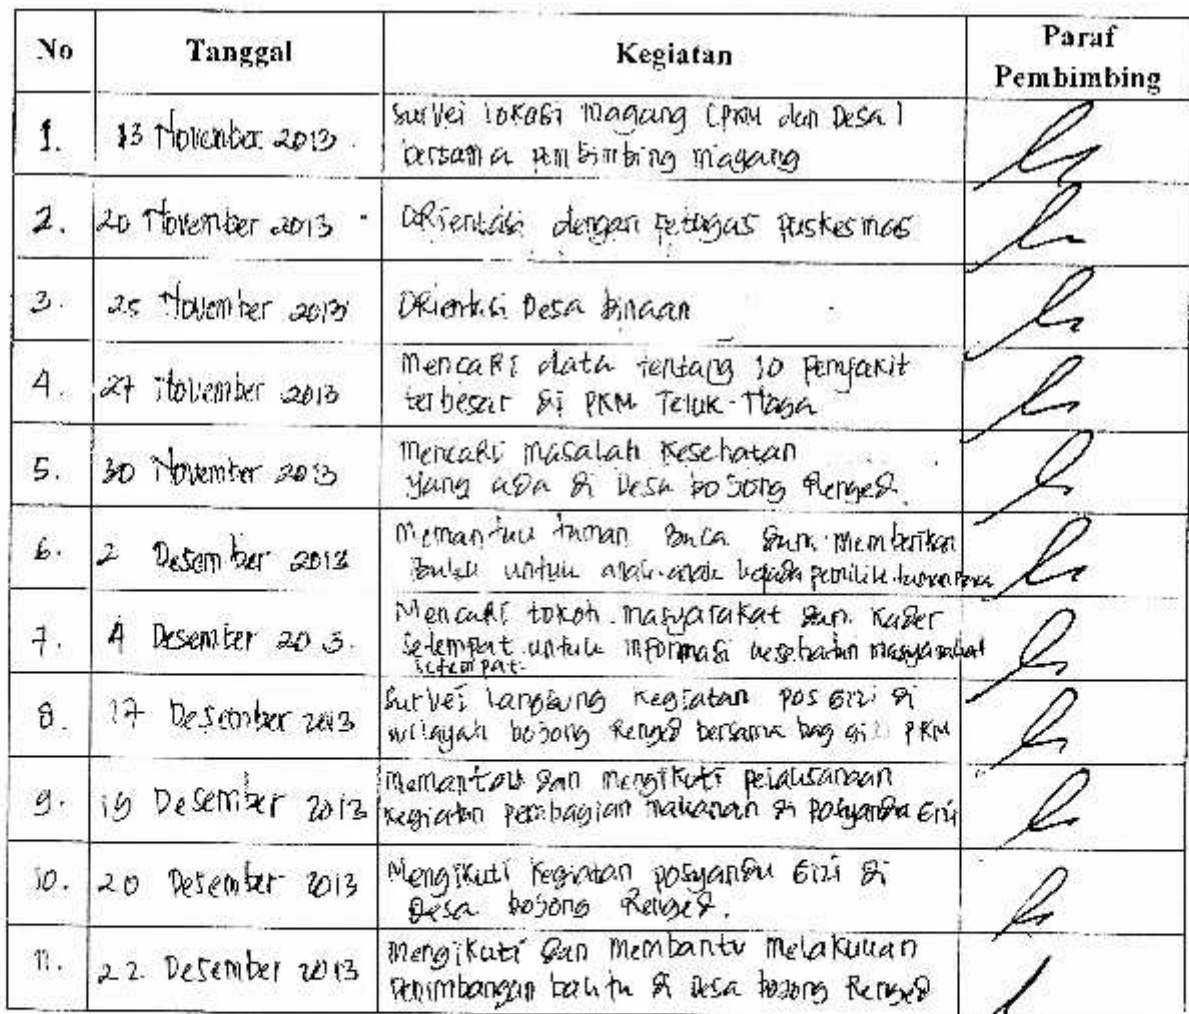 No Tanggal Kegiatan Paraf Pembimbing
1. 13 November 2013. Survei lokasi magang (PKM dan Desa)
bersama pembimbing magang
2. 20 November 2013 Orientasi dengan petugas puskesmas
3. 25 November 2013 Orientasi Desa binaan
4. 27 November 2013 Mencari data tentang 10 Penyakit
terbesar di PKM Teluk-Naga
5. 30 November 2013 Mencari masalah kesehatan
yang ada di Desa bojong Renged.
6. 2 Desember 2013 Memantau taman baca dan memberikan
buku untuk anak-anak kepada pemilik taman baca
7. 4 Desember 2013. Mencari tokoh masyarakat dan kader
setempat untuk informasi kesehatan masyarakat
setempat.
8. 17 Desember 2013 Survei langsung kegiatan pos Gizi di
wilayah bojong Renged bersama bag gizi PKM
9. 19 Desember 2013 memantau dan mengikuti pelaksanaan
kegiatan pembagian makanan di posyandu Gizi
10. 20 Desember 2013 Mengikuti kegiatan posyandu Gizi di
Desa bojong Renged.
11. 22 Desember 2013 Mengikuti dan membantu melakukan
Penimbangan balita di Desa bojong Renged